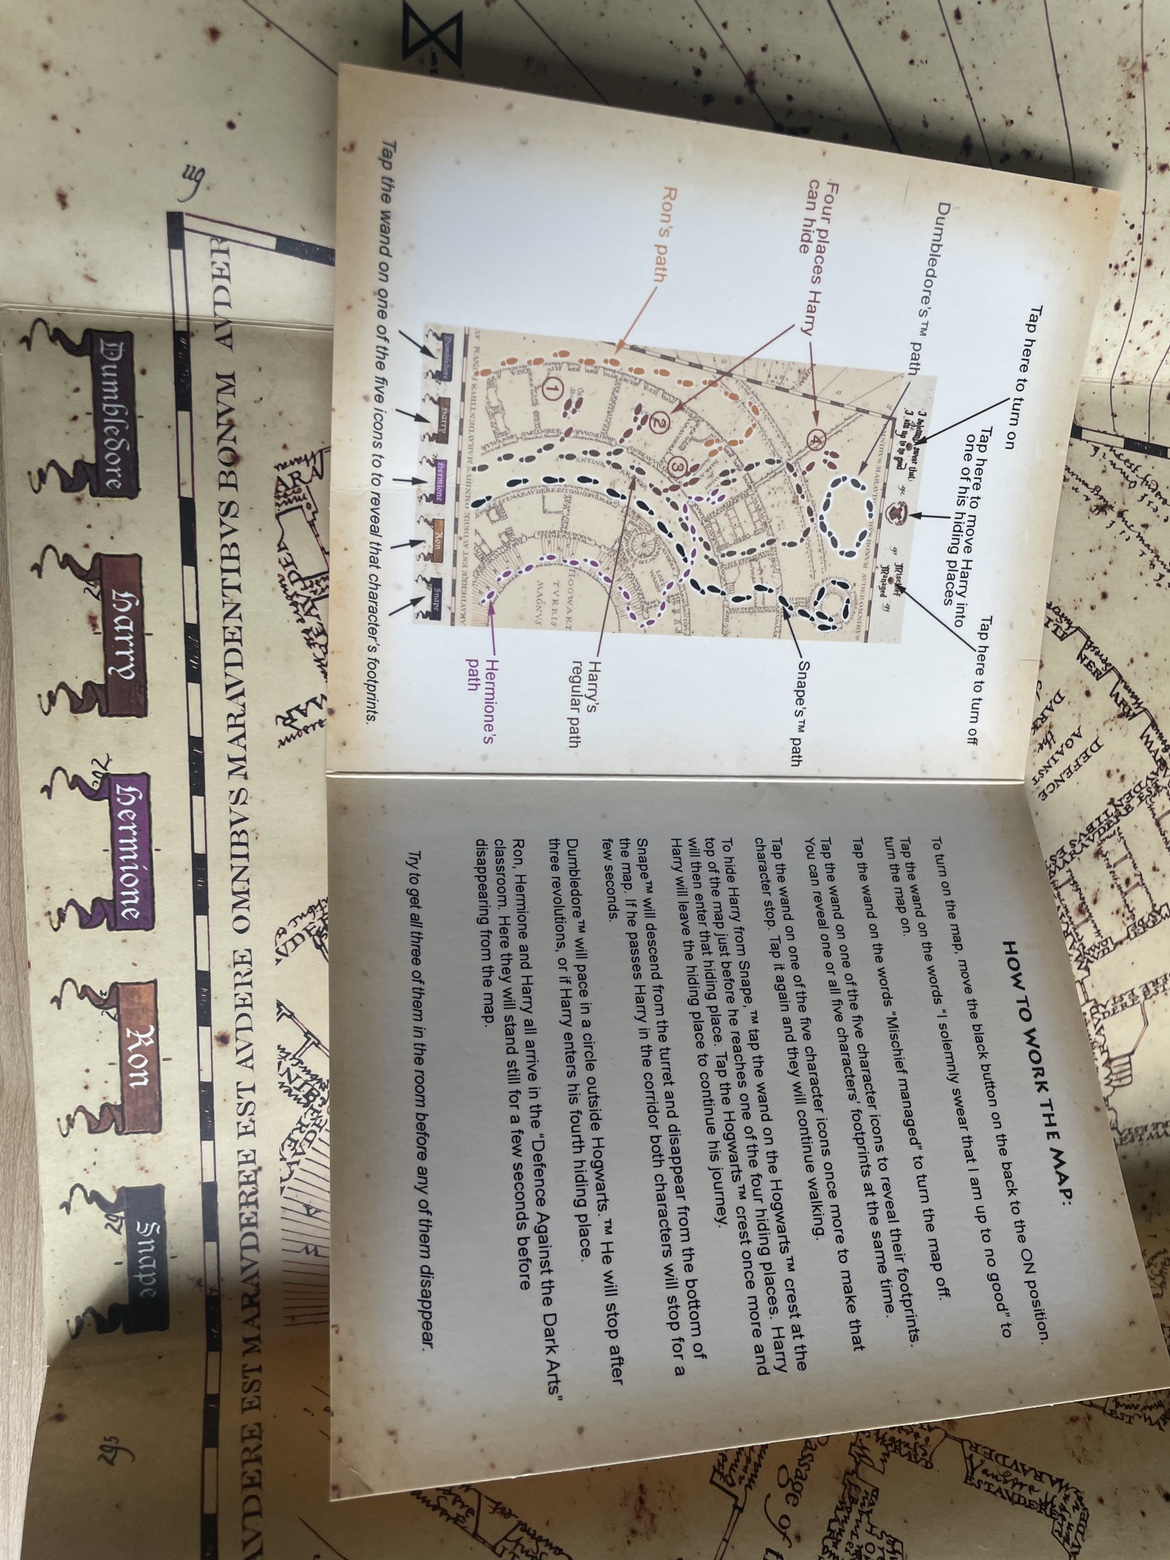 Tap here to turn on
Tap here to move Harry into
one of his hiding places
Tap here to turn off
Dumbledore's™ path
Four places Harry
can hide
Ron's path
Snape's™ path
Harry's
regular path
Hermione's
path
1
2
3
4
HOGWART
TVRRIS
MAGNVS
Dumbledore
Harry
Hermione
Ron
Snape
Tap the wand on one of the five icons to reveal that character's footprints.
HOW TO WORK THE MAP:
To turn on the map, move the black button on the back to the ON position.
Tap the wand on the words "I solemnly swear that I am up to no good" to
turn the map on.
Tap the wand on the words "Mischief managed" to turn the map off.
Tap the wand on one of the five character icons to reveal their footprints.
You can reveal one or all five characters' footprints at the same time.
Tap the wand on one of the five character icons once more to make that
character stop. Tap it again and they will continue walking.
To hide Harry from Snape,™ tap the wand on the Hogwarts™ crest at the
top of the map just before he reaches one of the four hiding places. Harry
will then enter that hiding place. Tap the Hogwarts™ crest once more and
Harry will leave the hiding place to continue his journey.
Snape™ will descend from the turret and disappear from the bottom of
the map. If he passes Harry in the corridor both characters will stop for a
few seconds.
Dumbledore™ will pace in a circle outside Hogwarts.™ He will stop after
three revolutions, or if Harry enters his fourth hiding place.
Ron, Hermione and Harry all arrive in the "Defence Against the Dark Arts"
classroom. Here they will stand still for a few seconds before
disappearing from the map.
Try to get all three of them in the room before any of them disappear.
DEFENCE
AGAINST
the
DARK
Passage of
AVDERE EST MARAVDEREE EST AVDERE OMNIBVS MARAVDENTIBVS BONVM AVDER
Dumbledore
Harry
Hermione
Ron
Snape
119
295